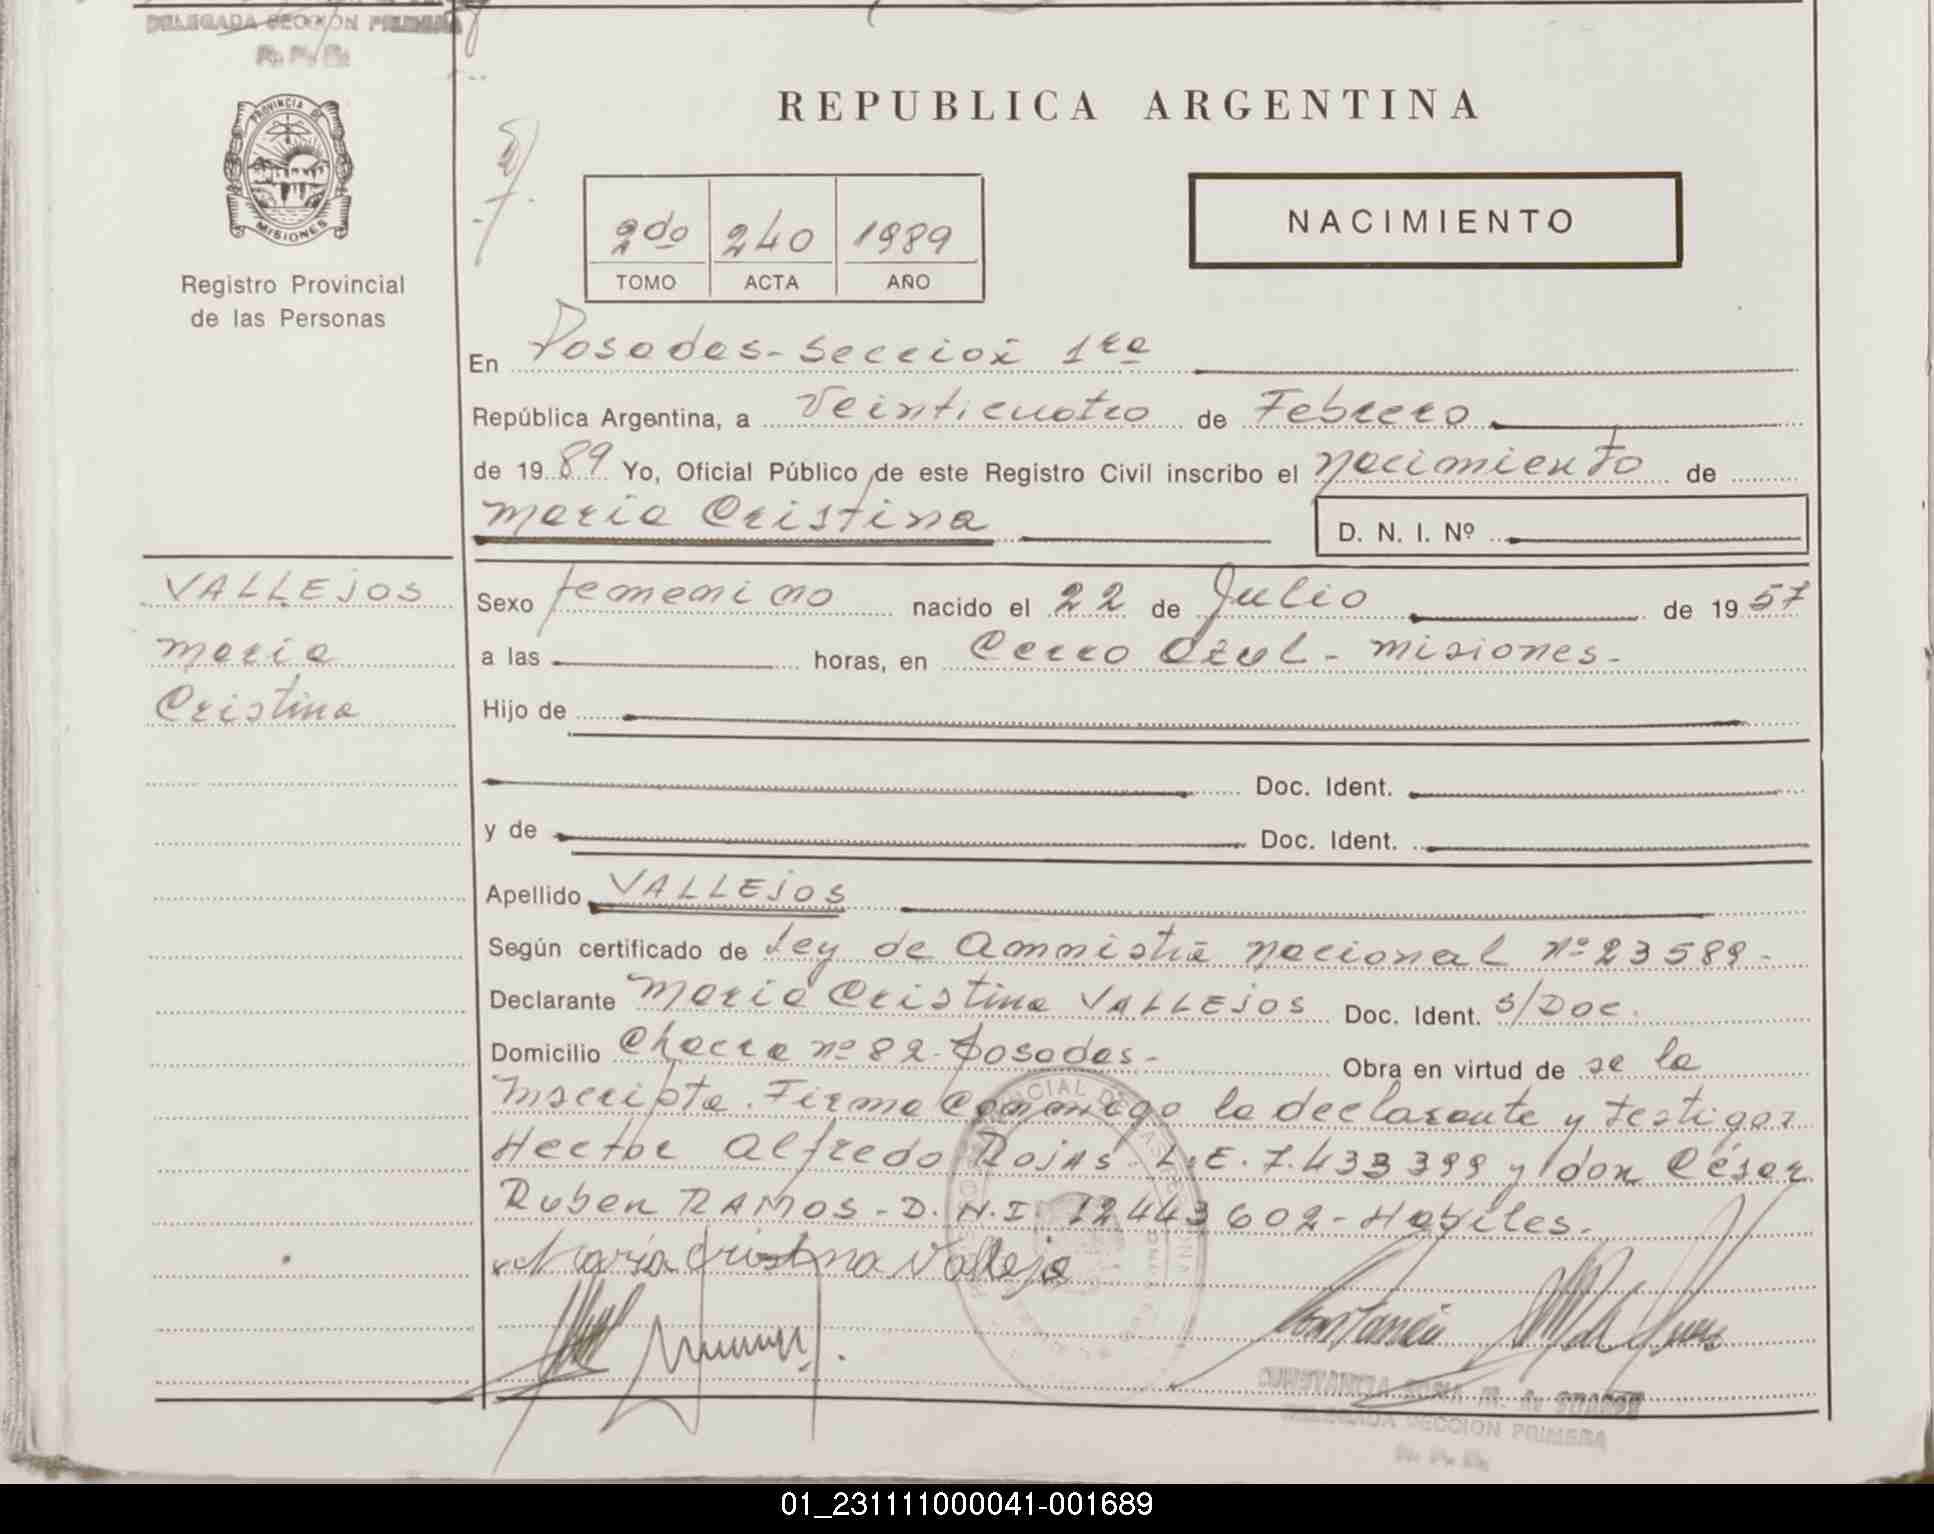 DELEGADA SECCION PRIMERA
R. P. P.
PROVINCIA DE
MISIONES
Registro Provincial
de las Personas
REPUBLICA ARGENTINA
2do 240 1989
TOMO ACTA AÑO
NACIMIENTO
En Posadas - Sección 1ra
República Argentina, a Veinticuatro de Febrero
de 1989 Yo, Oficial Público de este Registro Civil inscribo el nacimiento de
María Cristina
D. N. I. Nº
VALLEJOS
María
Cristina
Sexo femenino nacido el 22 de Julio de 1957
a las horas, en Cerro Azul - Misiones.
Hijo de
Doc. Ident.
y de Doc. Ident.
Apellido VALLEJOS
Según certificado de Ley de Amnistía Nacional Nº 23589.
Declarante María Cristina VALLEJOS Doc. Ident. S/Doc.
Domicilio Chacra nº 82 - Posadas - Obra en virtud de se la
Inscripta. Firma conmigo la declarante y testigos
Hector Alfredo ROJAS. L.E. 7.433399 y don César
Ruben RAMOS - D.N.I. 12443602 - Habiles.
María Cristina Vallejo
DELEGADA SECCION PRIMERA
01_231111000041-001689